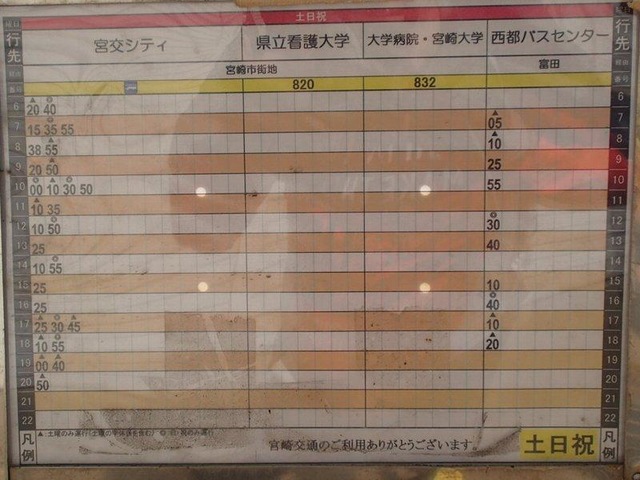 土日祝
行先 宮交シティ 県立看護大学 大学病院・宮崎大学 西都バスセンター 行先
経由 宮崎市街地 富田 経由
番号 820 832 番号
6 ▲20 ◎40 6
7 15 ◎35 55 ▲05 7
8 38 ▲55 ▲10 8
9 20 50 25 9
10 ◎00 ▲10 ◎30 50 55 10
11 ▲10 35 11
12 10 ◎50 ◎30 12
13 25 40 13
14 10 ◎55 14
15 25 10 15
16 25 ◎40 16
17 ▲25 ◎30 ▲45 ▲10 17
18 ▲10 ◎55 ▲20 18
19 ▲00 ▲40 19
20 ▲50 20
21 21
22 22
凡例 宮崎交通のご利用ありがとうございます。 土日祝 凡例